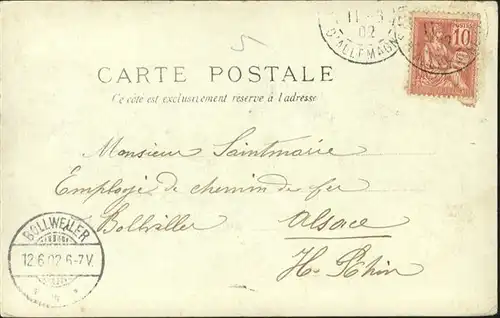 5
11
02
D'ALLEMAGNE
10
CARTE POSTALE
Ce côté est exclusivement réservé à l'adresse
Monsieur Saintmarie
Employé de chemin de fer
Bollviller Alsace
H. Rhin
BOLLWEILER
12.6.02 6-7 V.